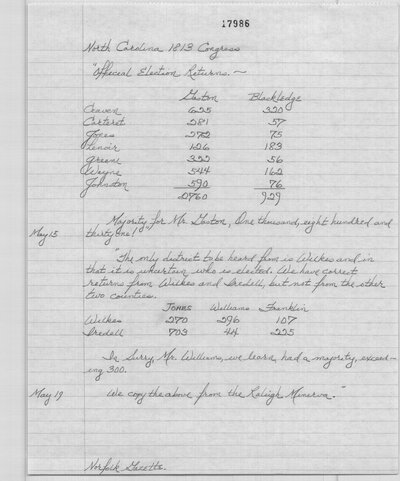 17986
North Carolina 1813 Congress
"Official Election Returns. —
Gaston Blackledge
Craven 625 320
Carteret 281 57
Jones 272 75
Lenoir 126 183
Greene 322 56
Wayne 544 162
Johnston 590 76
2760 929
Majority for Mr. Gaston, One thousand, eight hundred and
May 15 thirty one!"
"The only district to be heard from is Wilkes and in
that it is uncertain who is elected. We have correct
returns from Wilkes and Iredell, but not from the other
two counties.
Jones Williams Franklin
Wilkes 270 296 107
Iredell 703 44 225
In Surry, Mr. Williams, we learn had a majority, exceed-
ing 300.
May 19 We copy the above from the Raleigh Minerva."
Norfolk Gazette.